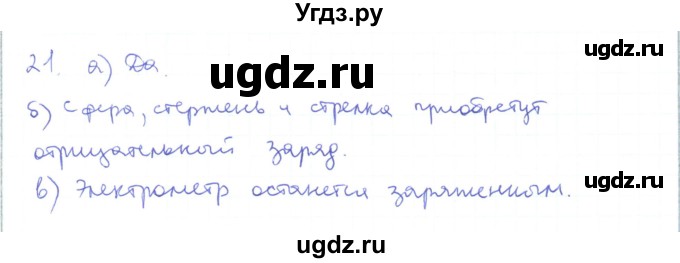 Угдз.ру
ugdz.ru
21. а) Да.
ugdz.ru
б) Сфера, стержень и стрелка приобретут
отрицательный заряд.
ugdz.ru
в) Электрометр останется заряженным.
ugdz.ru